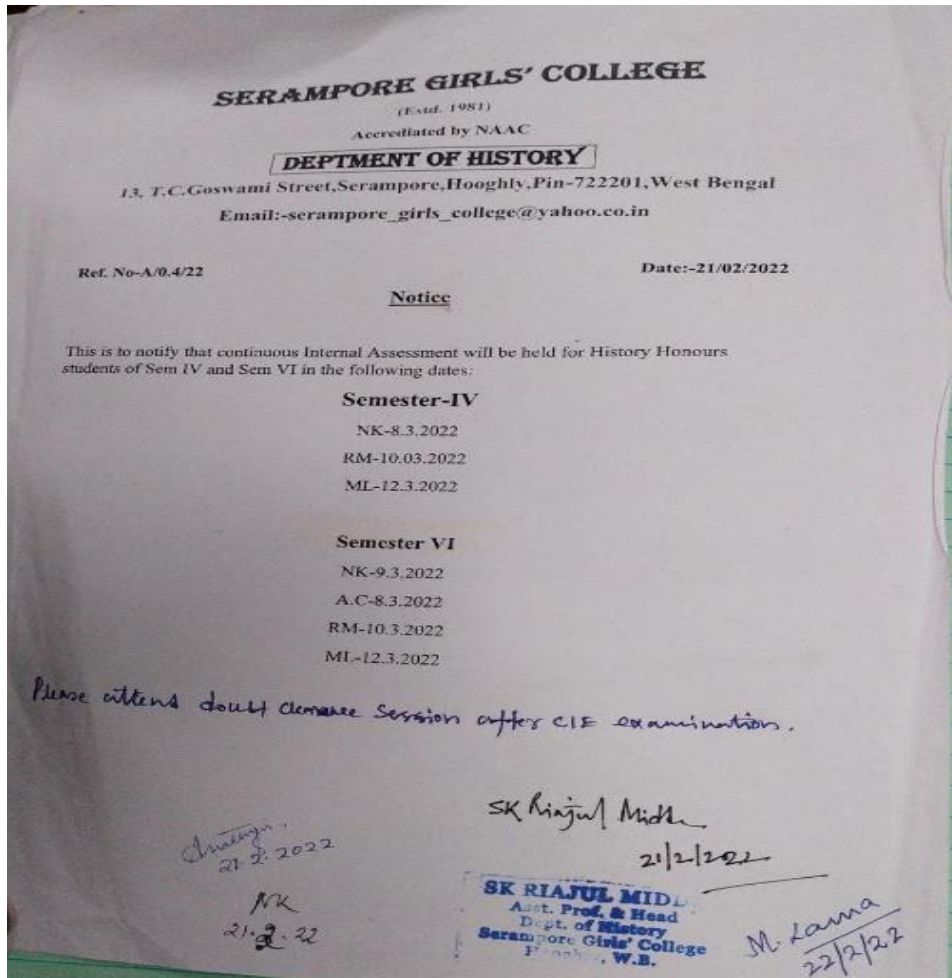 SERAMPORE GIRLS' COLLEGE
(Estd. 1981)
Accrediated by NAAC
DEPTMENT OF HISTORY
13, T.C.Goswami Street,Serampore,Hooghly,Pin-722201,West Bengal
Email:-serampore_girls_college@yahoo.co.in
Ref. No-A/0.4/22 Date:-21/02/2022
Notice
This is to notify that continuous Internal Assessment will be held for History Honours
students of Sem IV and Sem VI in the following dates:
Semester-IV
NK-8.3.2022
RM-10.03.2022
ML-12.3.2022
Semester VI
NK-9.3.2022
A.C-8.3.2022
RM-10.3.2022
ML-12.3.2022
Please attend doubt clearance Session after CIE examination.
SK Riajul Midd
21.2.2022 21/2/2022
NK
21.2.22
SK RIAJUL MIDD
Asst. Prof. & Head
Dept. of History
Serampore Girls' College
W.B.
M. Lama
22/2/22